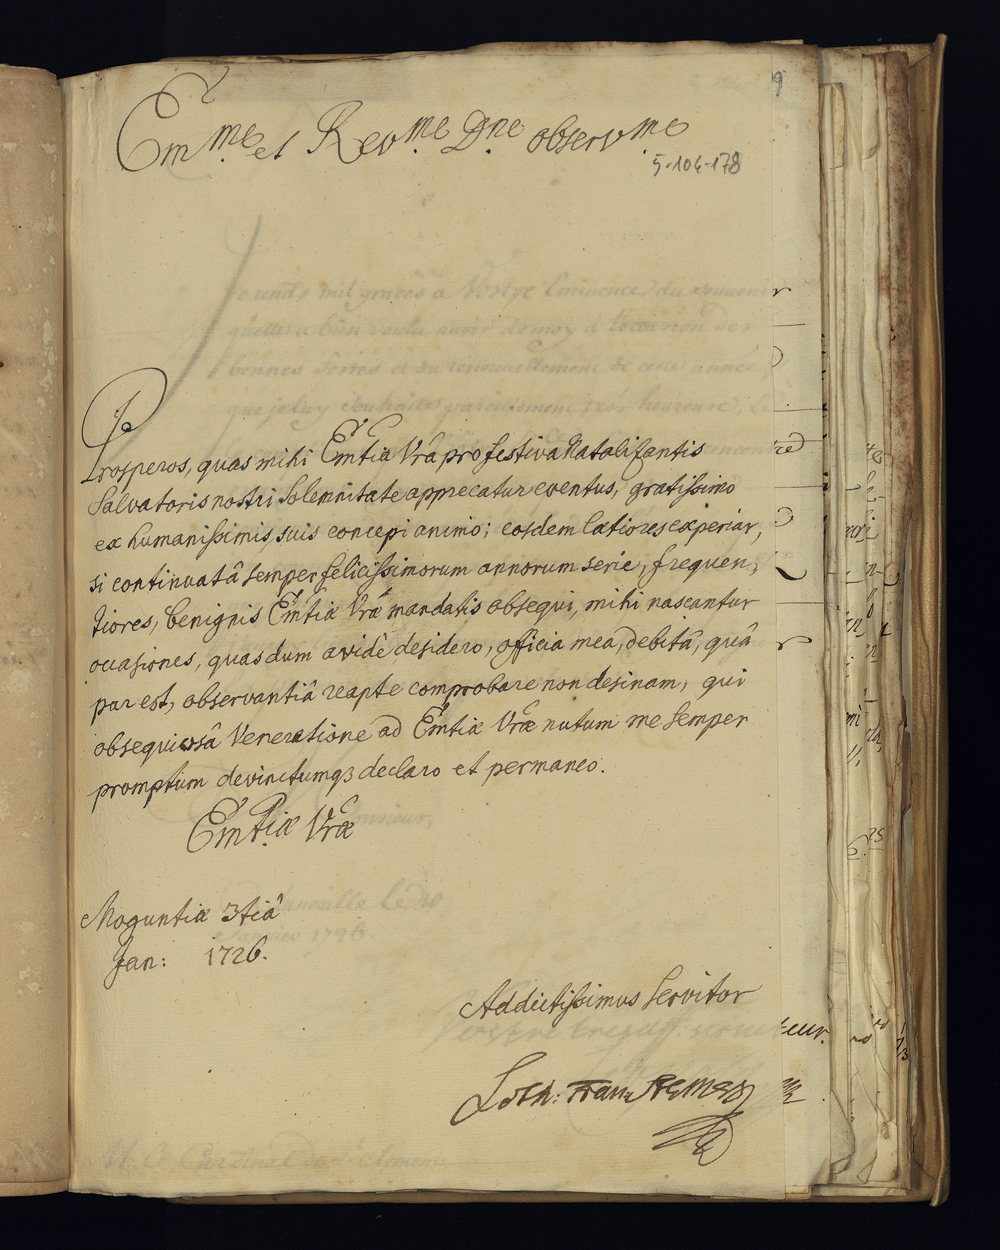 9
Em.me et Rev.me Dne observ.me
5-104-178
Prosperos, quas mihi Emtia Vrâ pro festiva Natalizantis
Salvatoris nostri solemnitate apprecatur eventus, gratissimo
ex humanissimis suis concepi animo; eosdem latiores experiar,
si continuatâ semper felicissimorum annorum serie, frequen,
tiores, benignis Emtiæ Vræ mandatis obsequi, mihi nascantur
ocasiones, quas dum avidè desidero, officia mea, debitâ, quâ
par est, observantiâ reapte comprobare non desinam, qui
obsequiosâ Veneratione ad Emtiæ Vræ nutum me semper
promptum devinctumqȝ declaro et permaneo.
Emtiæ Vræ
Moguntiæ 3tiâ
Jan: 1726.
Addictissimus servitor
Loth: Fran: